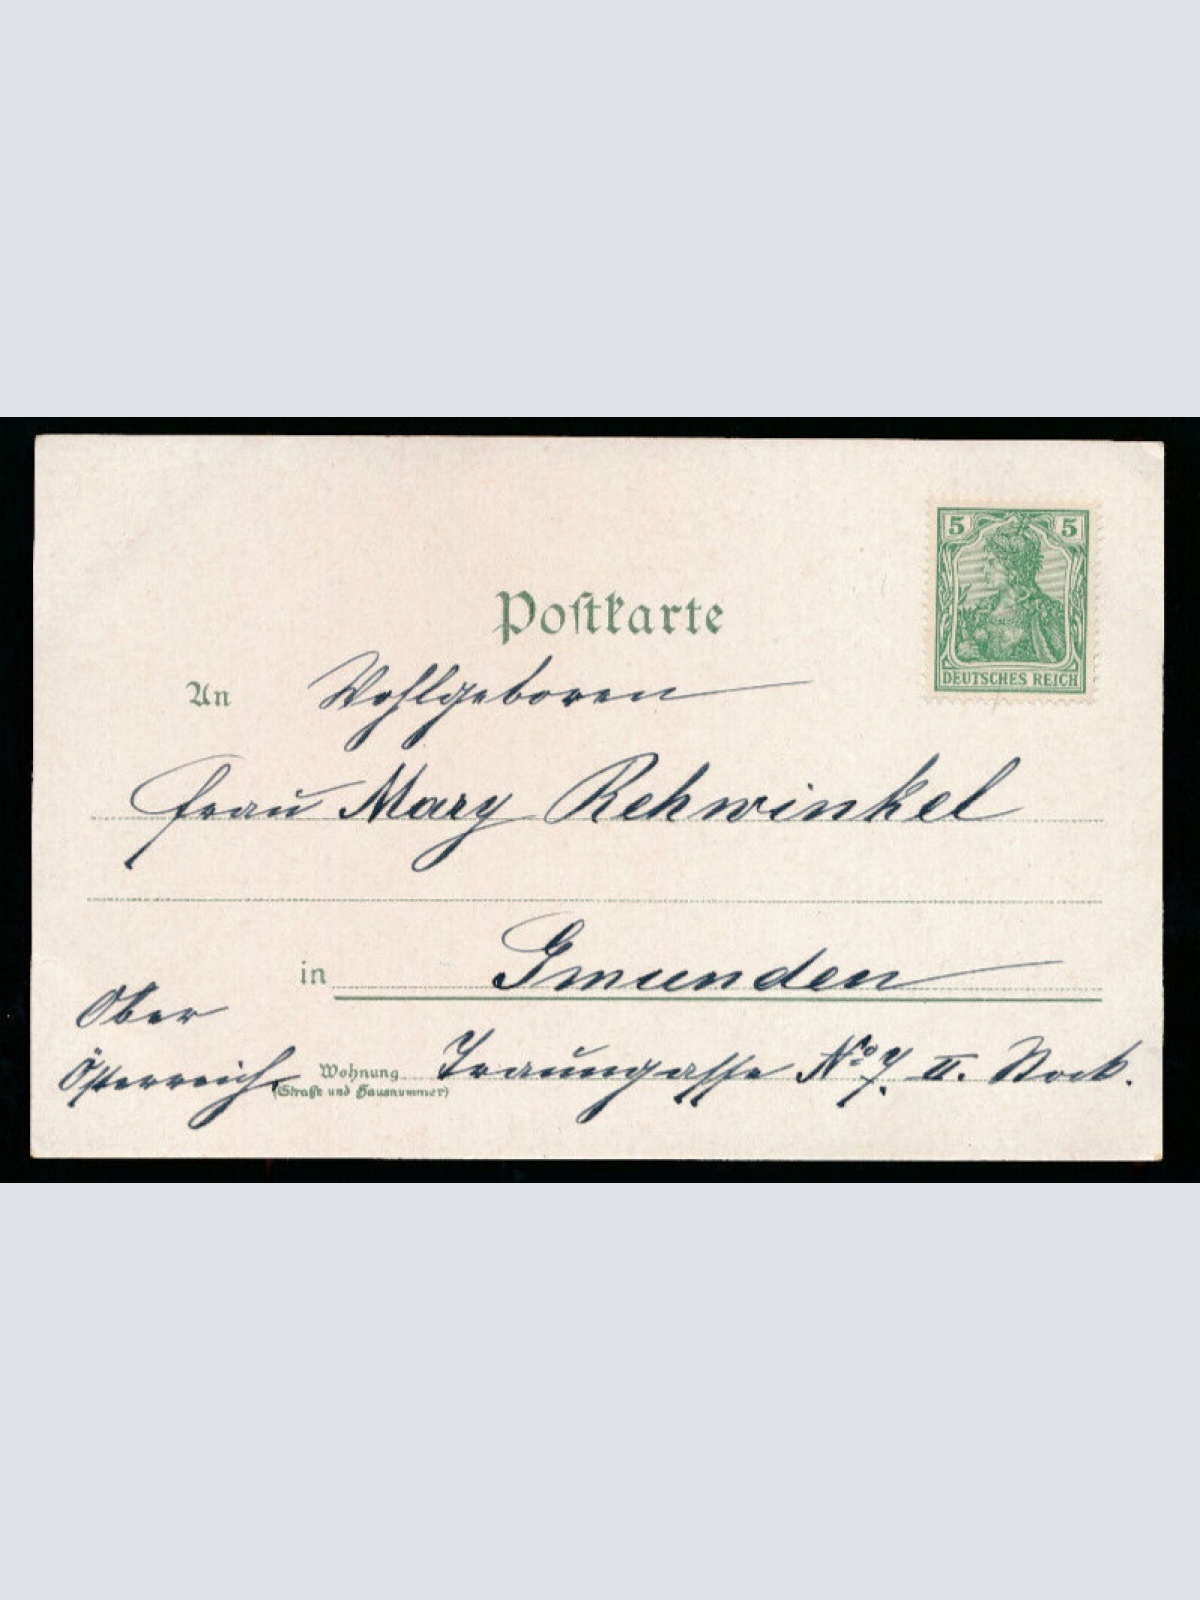 5 5
DEUTSCHES REICH
Postkarte
An Wohlgeboren
Frau Mary Rehwinkel
in Gmunden
Ober
Österreich.
Wohnung Traungasse No 7. II. Stock.
(Straße und Hausnummer)